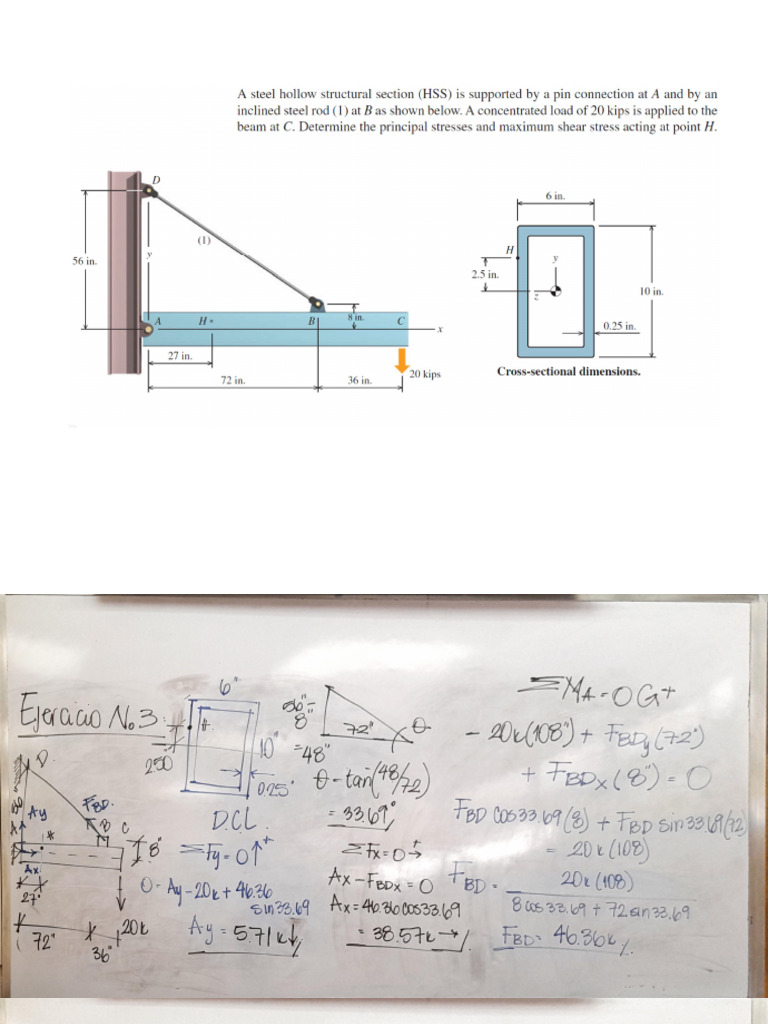 A steel hollow structural section (HSS) is supported by a pin connection at A and by an
inclined steel rod (1) at B as shown below. A concentrated load of 20 kips is applied to the
beam at C. Determine the principal stresses and maximum shear stress acting at point H.
D
(1)
56 in.
y
A
H
B
8 in.
C
x
27 in.
72 in.
36 in.
20 kips
6 in.
H
y
2.5 in.
z
10 in.
0.25 in.
Cross-sectional dimensions.
Ejercicio No.3:
6"
H.
2.50"
10"
0.25"
D.
FBD
Ay
B
C
A
8"
Ax
27"
72"
36"
20k
D.C.L.
ΣFy=0↑+
0=Ay-20k+46.36
sin33.69
Ay=5.71k↓
56"-
8"
=48"
72"
θ
θ=tan(48/72)
=33.69°
ΣFx=0→+
Ax-FBDx=0
Ax=46.36cos33.69
=38.57k→
ΣMA=0G+
-20k(108")+FBDy(72")
+FBDx(8")=0
FBD cos33.69(8)+FBD sin33.69(72)
=20k(108)
FBD=
20k(108)
8cos33.69+72sin33.69
FBD=46.36k